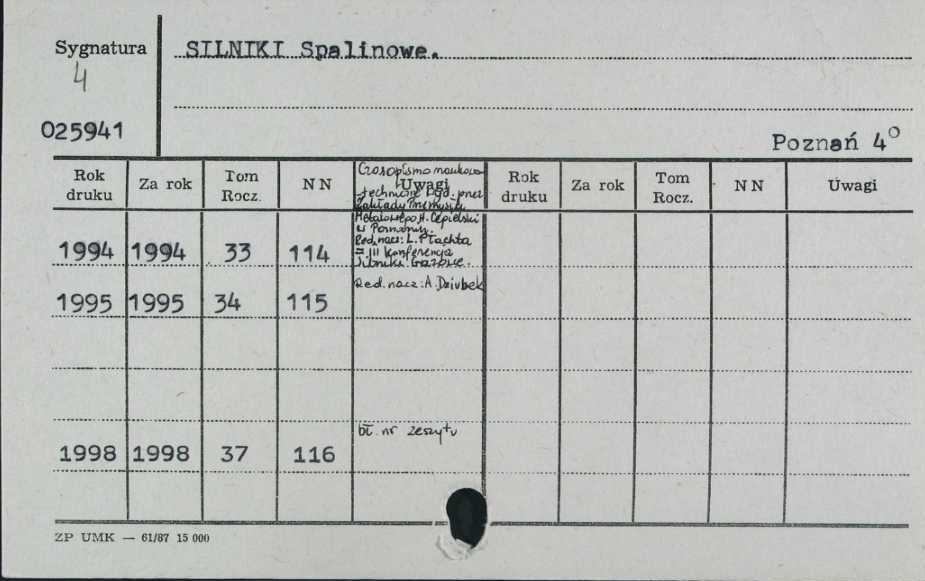 Sygnatura
SILNIKI Spalinowe.
4
025941
Poznań 4°
Rok druku Za rok Tom Rocz. NN Uwagi Rok druku Za rok Tom Rocz. NN Uwagi
Czasopismo naukowo
-techniczne pod. przez
Zakłady Przemysłu
Metalowego H. Cegielski
w Poznaniu.
Red. nacz: L. Płachta
= III Konferencja
Silniki Gazowe.
1994 1994 33 114
Red. nacz: A. Dziubek
1995 1995 34 115
bł. nr zeszytu
1998 1998 37 116
ZP UMK — 61/87 15 000